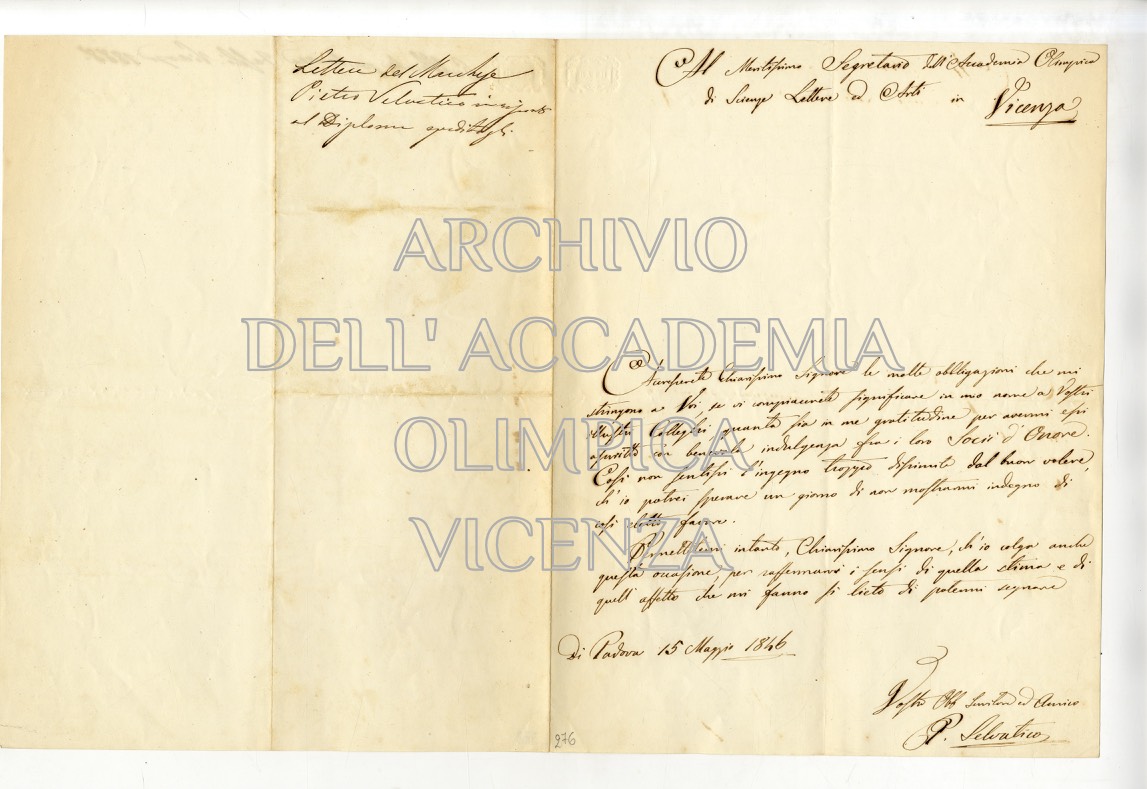 Lettera del Marchese
Pietro Selvatico in risposta
al Diploma speditogli
Al Meritissimo Segretario dell'Accademia Olimpica
di Scienze Lettere ed Arti in Vicenza
ARCHIVIO
DELL' ACCADEMIA
OLIMPICA
VICENZA
Accrescerete Chiarissimo Signore le molte obbligazioni che mi
stringono a Voi, se vi compiacerete significare in mio nome a' Vostri
illustri Colleghi quanta sia in me gratitudine per avermi essi
ascritto con benevola indulgenza fra i loro Socii d'Onore.
Così non sentissi l'ingegno troppo disforme dal buon volere,
ch'io potrei sperare un giorno di non mostrarmi indegno di
così favore.
Permettetemi intanto, Chiarissimo Signore, ch'io colga anche
questa occasione, per raffermarvi i sensi di quella stima e di
quell'affetto che mi fanno sì lieto di potermi segnare
Di Padova 15 Maggio 1846
Vostro Obb Servitore ed Amico
P. Selvatico
276